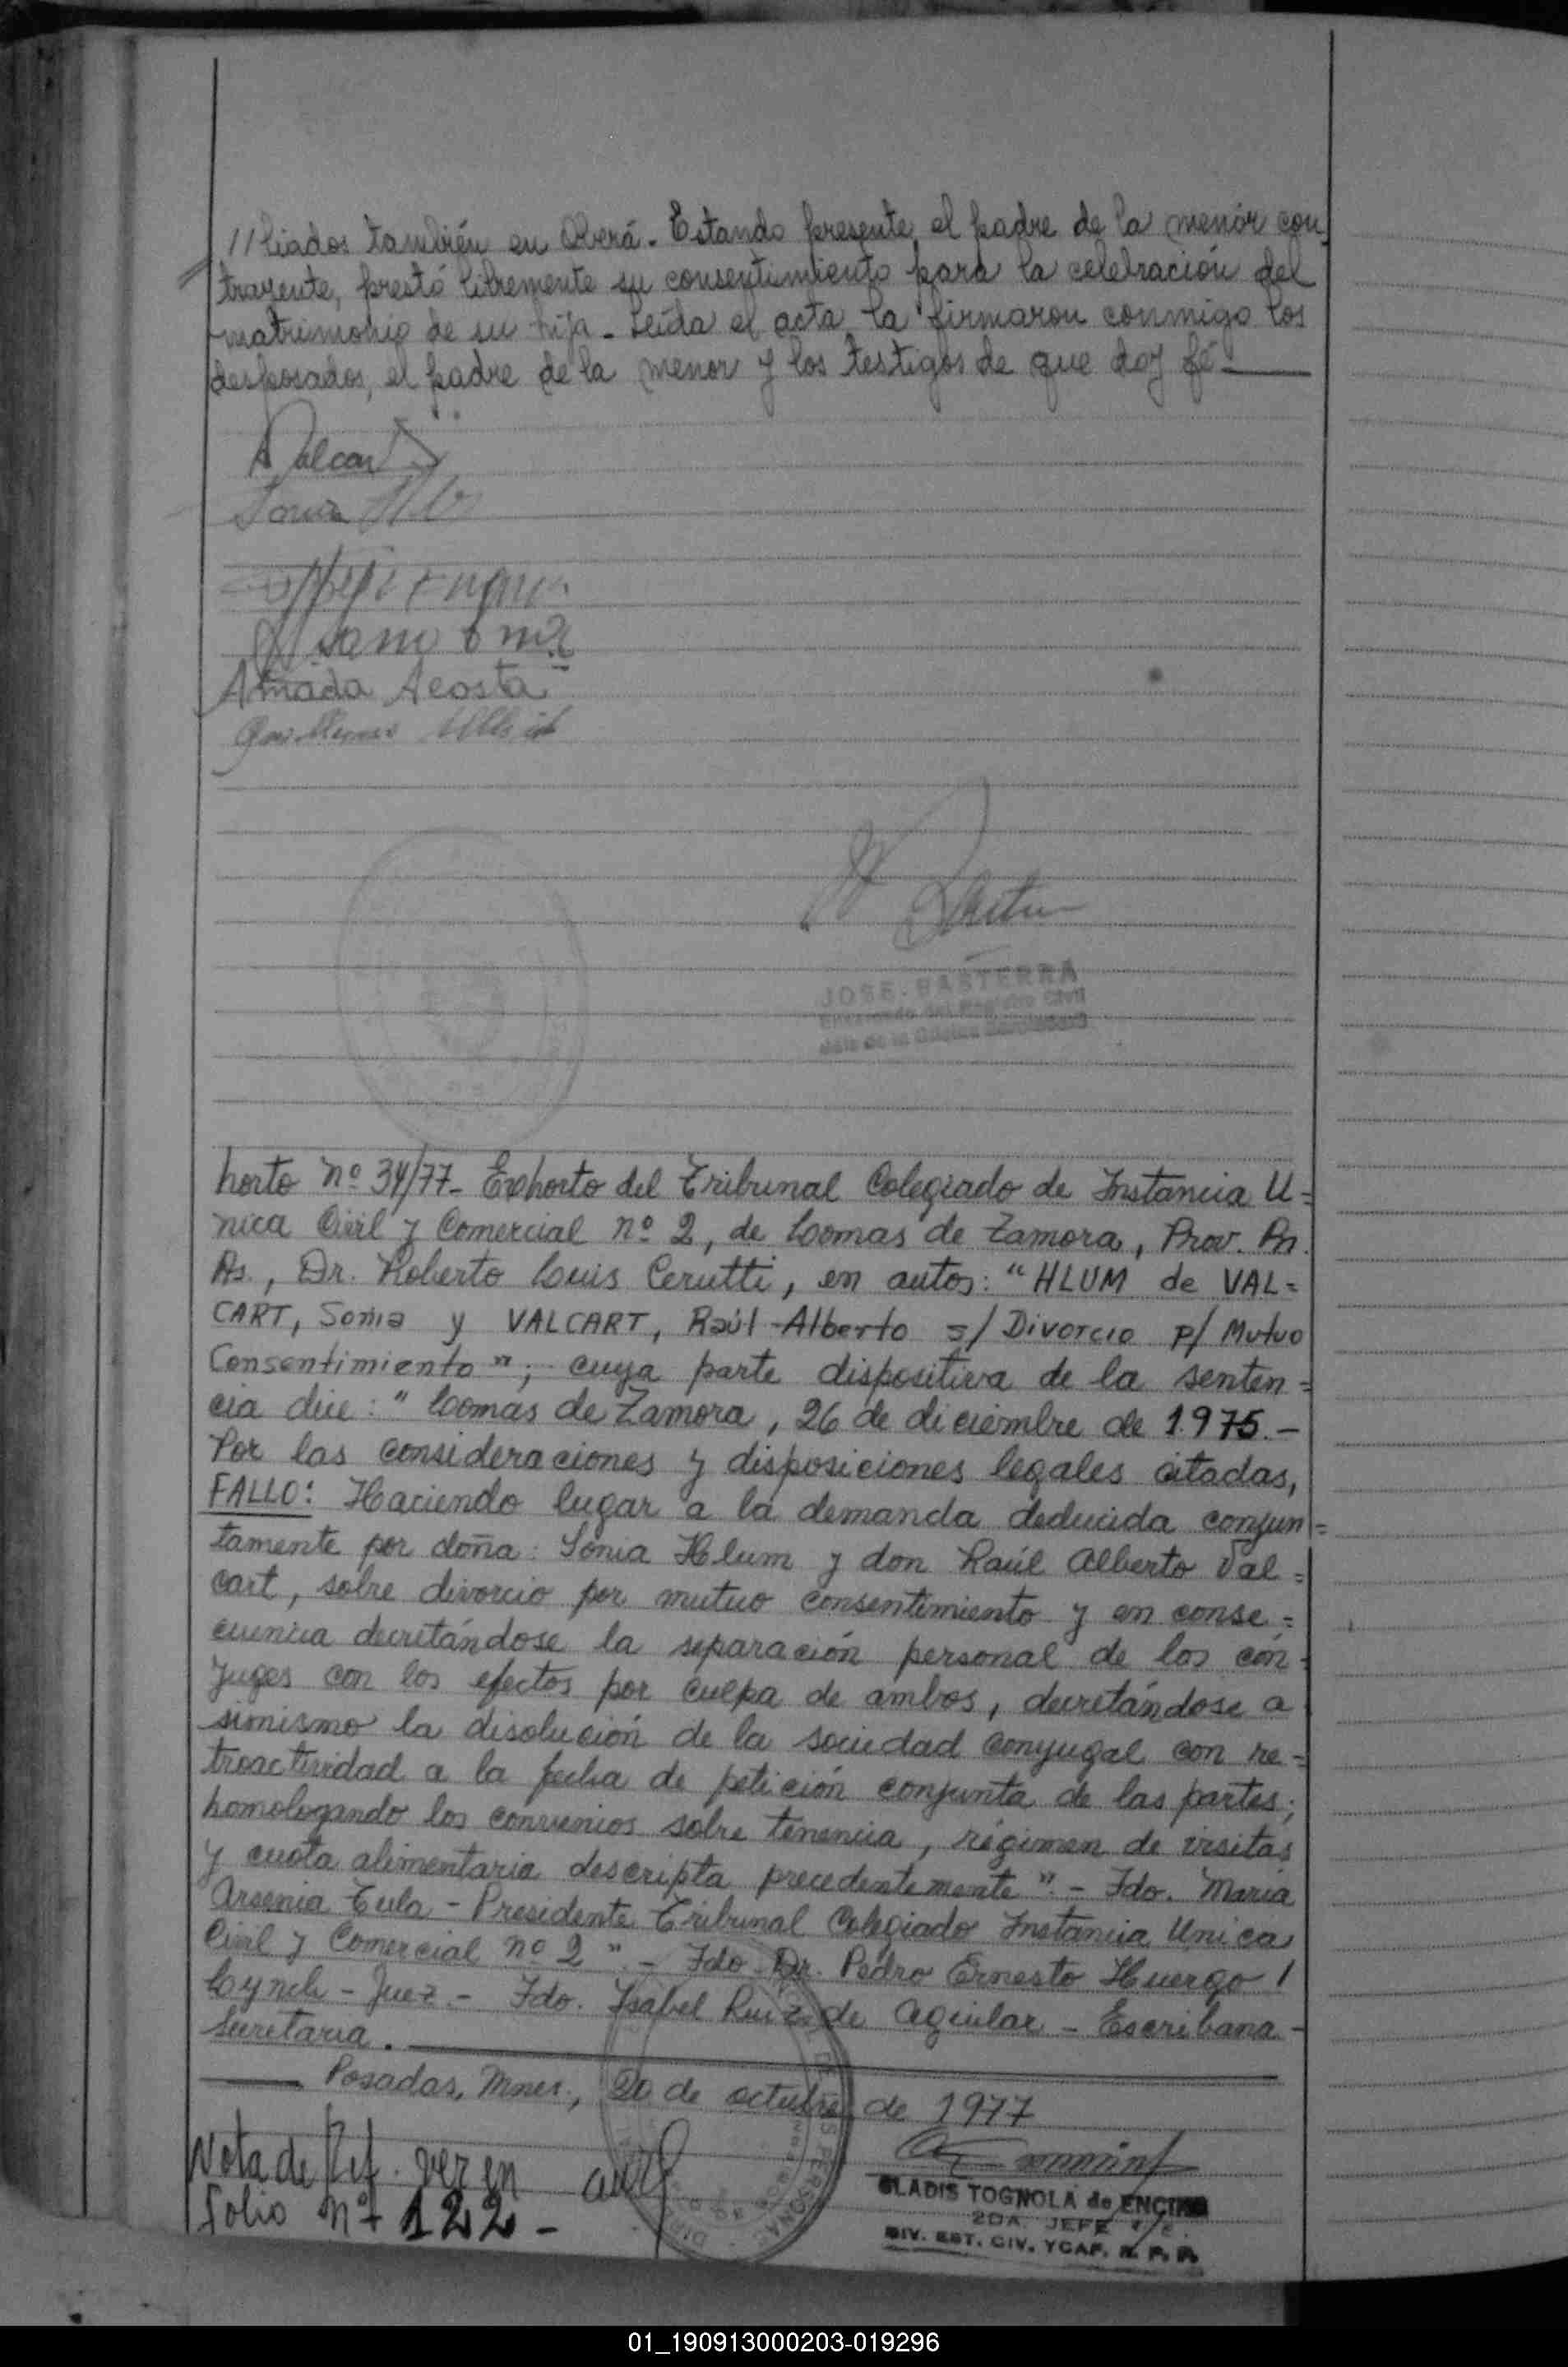 //liados también en Oberá. Estando presente el padre de la menor con
trayente, prestó libremente su consentimiento para la celebración del
matrimonio de su hija. Leída el acta la firmaron conmigo los
desposados, el padre de la menor y los testigos de que doy fé.
Valcart
Sonia
Amada Acosta
Guillermo
JOSE BASTERRA
Encargado del Registro Civil
horto nº 34/77- Exhorto del Tribunal Colegiado de Instancia U=
nica Civil y Comercial nº 2, de Lomas de Zamora, Prov. Bs.
As., Dr. Roberto Luis Cerutti, en autos: "HLUM de VAL=
CART, Sonia y VALCART, Raúl Alberto s/ Divorcio p/ Mutuo
Consentimiento"; cuya parte dispositiva de la senten=
cia dice: "Lomas de Zamora, 26 de diciembre de 1.975.-
Por las consideraciones y disposiciones legales citadas,
FALLO: Haciendo lugar a la demanda deducida conjun=
tamente por doña: Sonia Hlum y don Raúl Alberto Val=
cart, sobre divorcio por mutuo consentimiento y en conse=
cuencia decretándose la separación personal de los cón-
yuges con los efectos por culpa de ambos, decretándose a
simismo la disolución de la sociedad conyugal con re-
troactividad a la fecha de petición conjunta de las partes;
homologando los convenios sobre tenencia, régimen de visitas
y cuota alimentaria descripta precedentemente".- Fdo. Maria
Arsenia Tula - Presidente Tribunal Colegiado Instancia Unica
Civil y Comercial nº 2".- Fdo. Dr. Pedro Ernesto Huergo /
Lynch - Juez.- Fdo. Isabel Ruiz de Aguilar - Escribana -
Secretaria.
Posadas, Mnes., 20 de octubre de 1977
Nota de Ref. ver en
folio nº 122-
GLADIS TOGNOLA de ENCINA
2DA. JEFE
DIV. EST. CIV. YCAP. R. P. P.
01_190913000203-019296